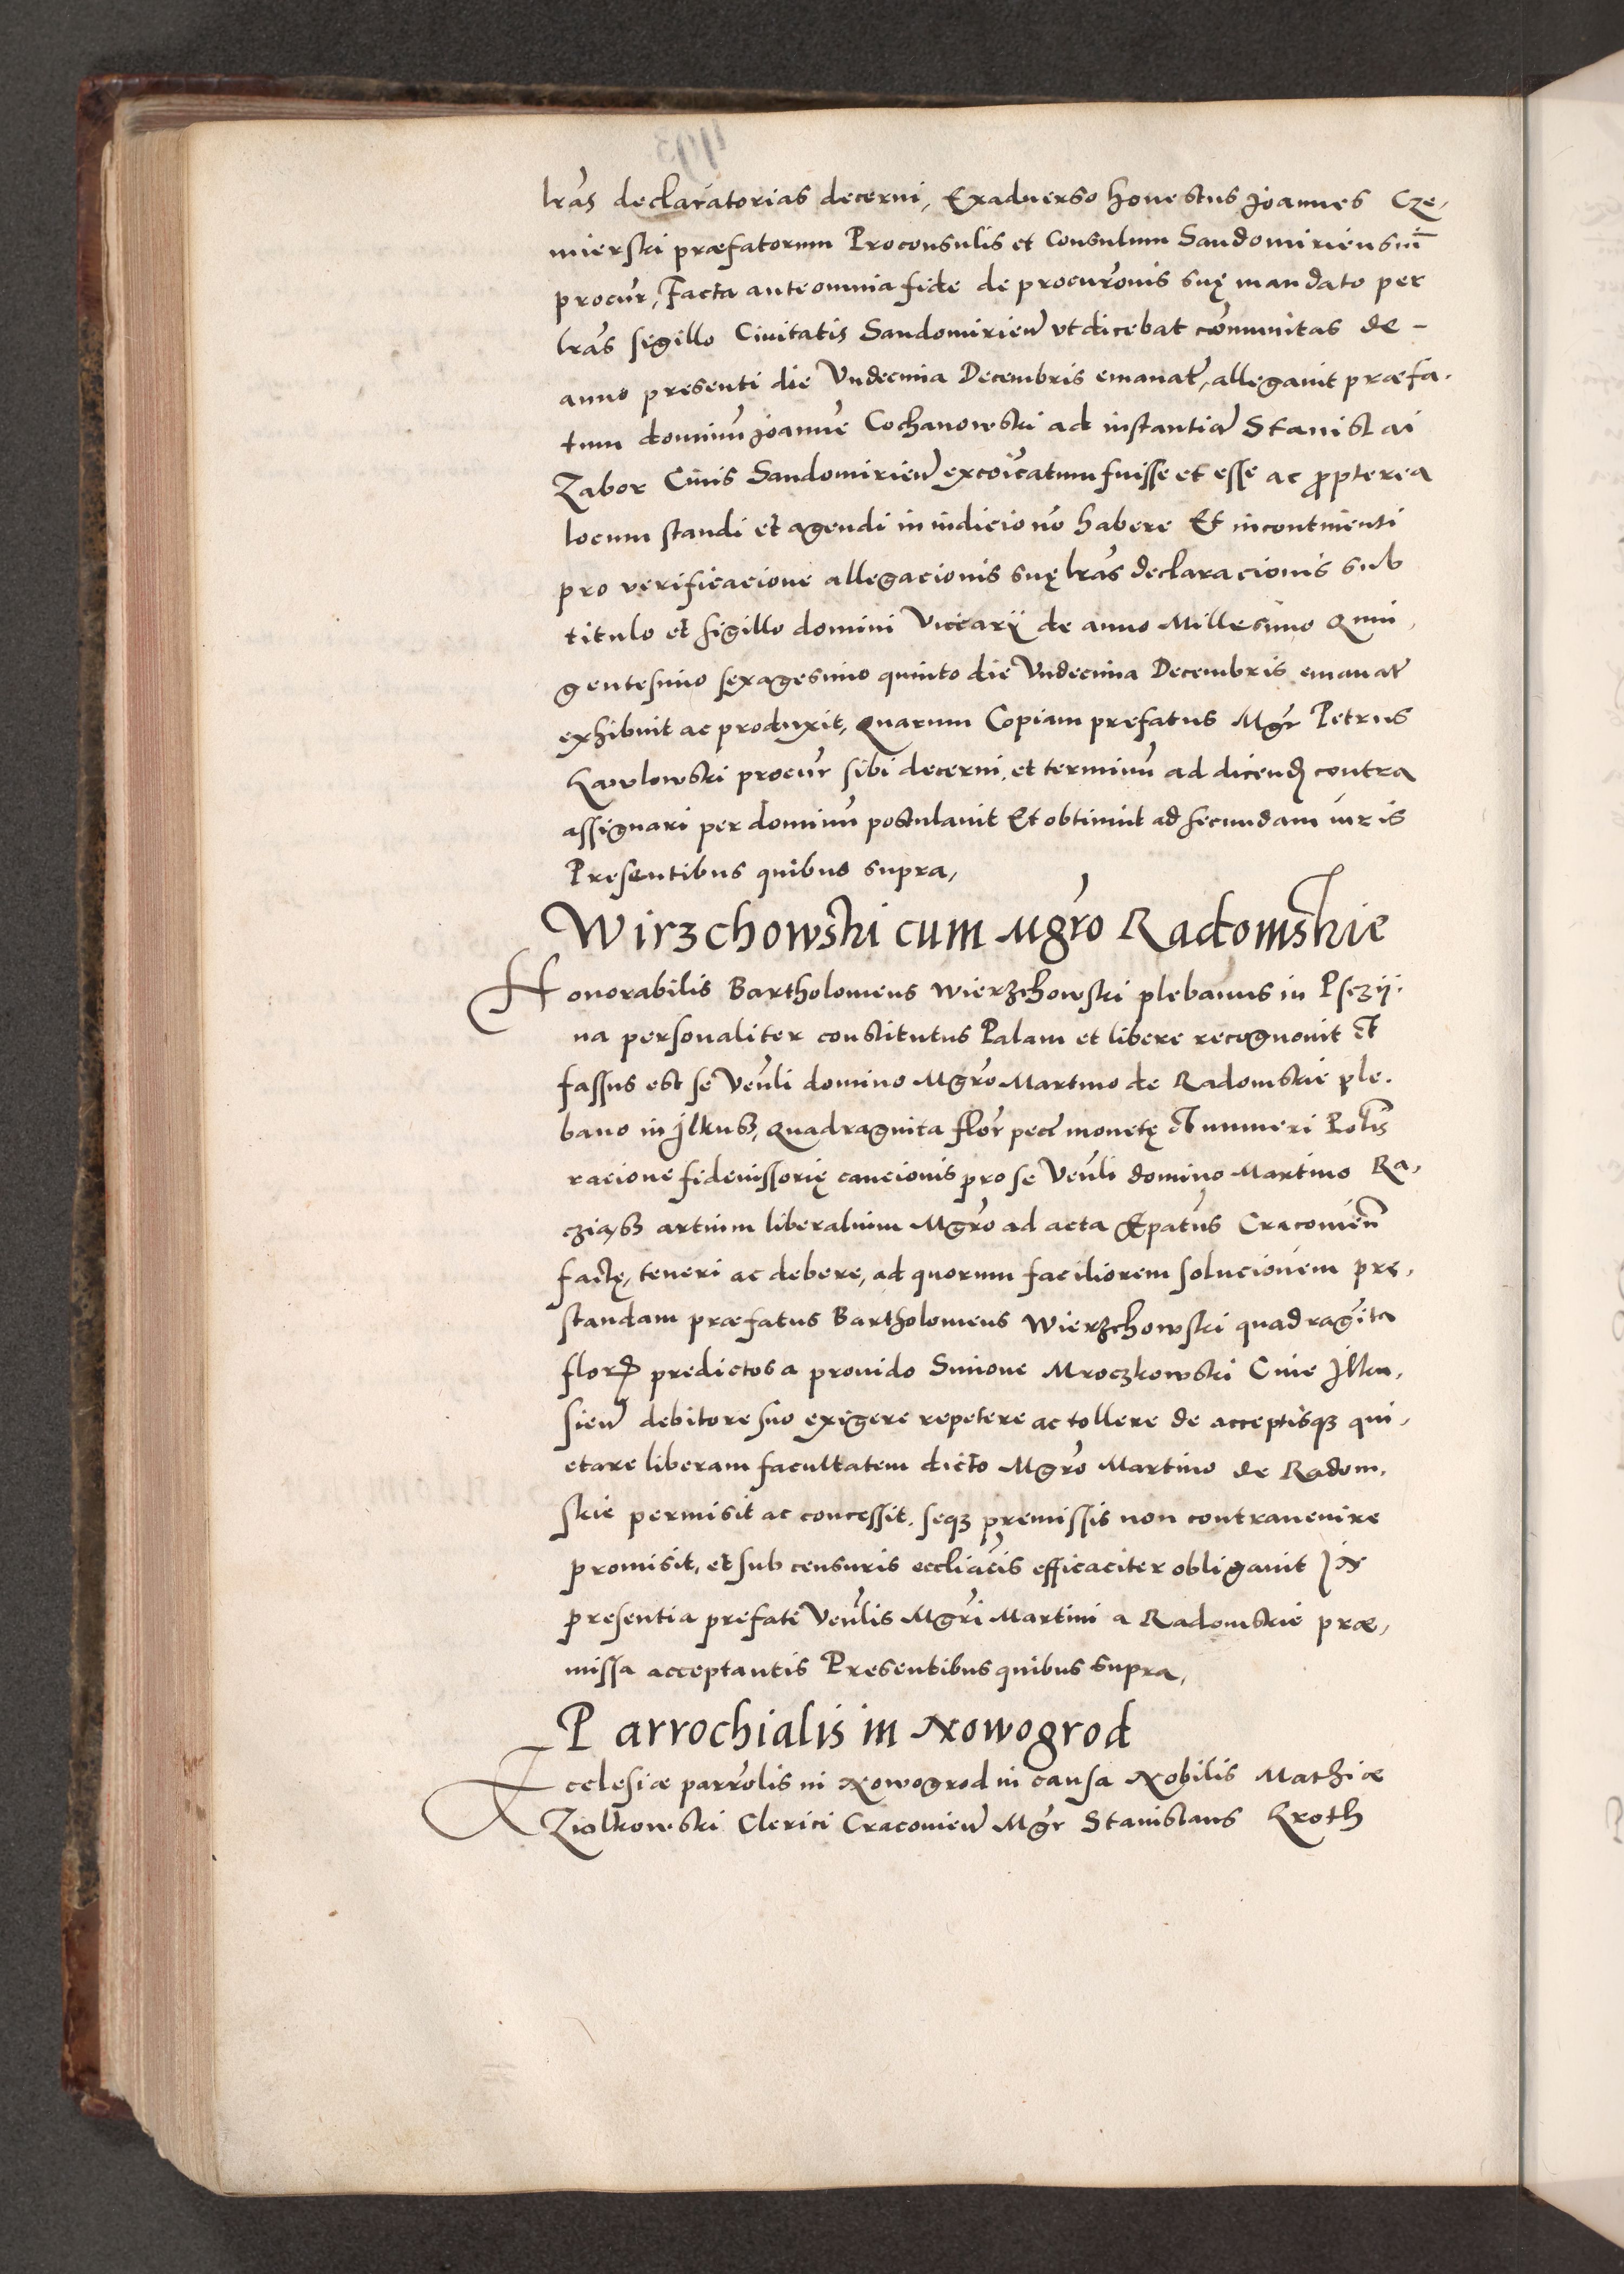 lr̃as declaratorias decerni, Exaduerso honestus Joannes Cze,
mierski præfatorum Proconsulis et Consulum Sandomiriensiũ
procur̃, Facta ante omnia fide de procur̃onis suę mandato per
lr̃as sigillo Ciuitatis Sandomirieñ vt dicebat cõmunitas de -
anno presenti die Vndecima Decembris emanat̃, allegauit præfa.
tum dominũ Joannẽ Cochanowski ad instantiã Stanislai
Zabor Ciuis Sandomirieñ excõicatum fuisse et esse ac ꝓpterea
locum standi et agendi in iudicio nõ habere Et incontinenti
pro verificacione allegacionis suę lr̃as declaracionis sub
titulo et sigillo domini Vicarij de anno Millesimo Quin,
gentesimo sexagesimo quinto die Vndecima Decembris emanat̃
exhibuit ac produxit, Quarum Copiam prefatus Mgr̃ Petrus
Kawlowski procur̃ sibi decerni, et terminũ ad dicend̃ contra
assignari per dominũ postulauit Et obtinuit ad secundam iuris
Presentibus quibus supra,
Wirzchowski cum Mgr̃o Radomskie
Honorabilis Bartholomeus Wierzchowski plebanus in Psczij.
na personaliter constitutus Palam et libere recognouit et
fassus est se Veñli domino Mgr̃o Martino de Radomskie ple.
bano in Jlkusz, Quadraginta flor̃ pecc̃ monetę et numeri Pol̃is
racione fideiussorię caucionis pro se Veñli domino Martino Ra,
cziąsz artium liberalium Mgr̃o ad acta Ep̃atus Cracouieñ
factę, teneri ac debere, ad quorum faciliorem solucionem pre,
standam præfatus Bartholomeus Wierzchowski quadragĩta
flor̃ predictos a prouido Simone Mroczkowski Ciue Jlku,
sieñ debitore suo exigere repetere ac tollere de acceptisqꝫ qui,
etare liberam facultatem dicto Mgr̃o Martino de Radom,
skie permisit ac concessit, seqꝫ premissis non contrauenire
promisit, et sub censuris eccl̃iacis efficaciter obligauit Jn
presentia prefati Veñlis Mgr̃i Martini a Radomskie præ,
missa acceptantis Presentibus quibus supra,
Parrochialis in Nowogrod
Ecclesiæ parr̃olis in Nowogrod in causa Nobilis Mathiæ
Ziolkowski Clerici Cracouieñ Mgr̃ Stanislaus Kroth